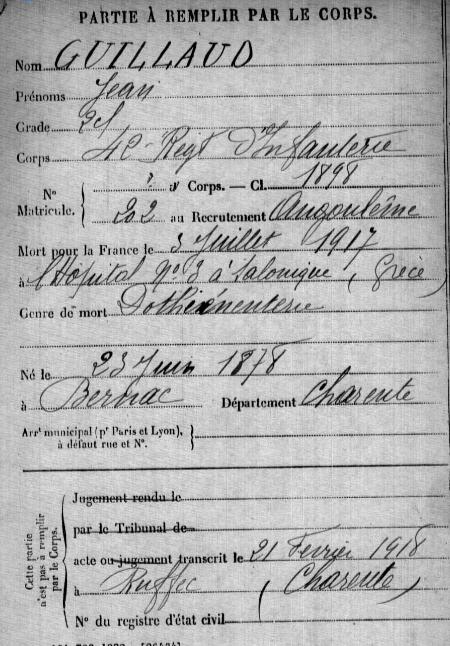 PARTIE À REMPLIR PAR LE CORPS.
Nom GUILLAUD
Prénoms Jean
Grade 2e
Corps 4e Regt d'Infanterie
N° Matricule. { ? au Corps. — Cl. 1898
202 au Recrutement Angoulême
Mort pour la France le 3 Juillet 1917
à l'Hôpital n° 3 à Salonique (Grèce)
Genre de mort Dothienenterie
Né le 23 Juin 1878
à Bernac Département Charente
Arrt municipal (pr Paris et Lyon), à défaut rue et N°. {
Cette partie n'est pas à remplir par le Corps.
Jugement rendu le
par le Tribunal de
acte ou jugement transcrit le 21 Février 1918
à Ruffec (Charente)
N° du registre d'état civil